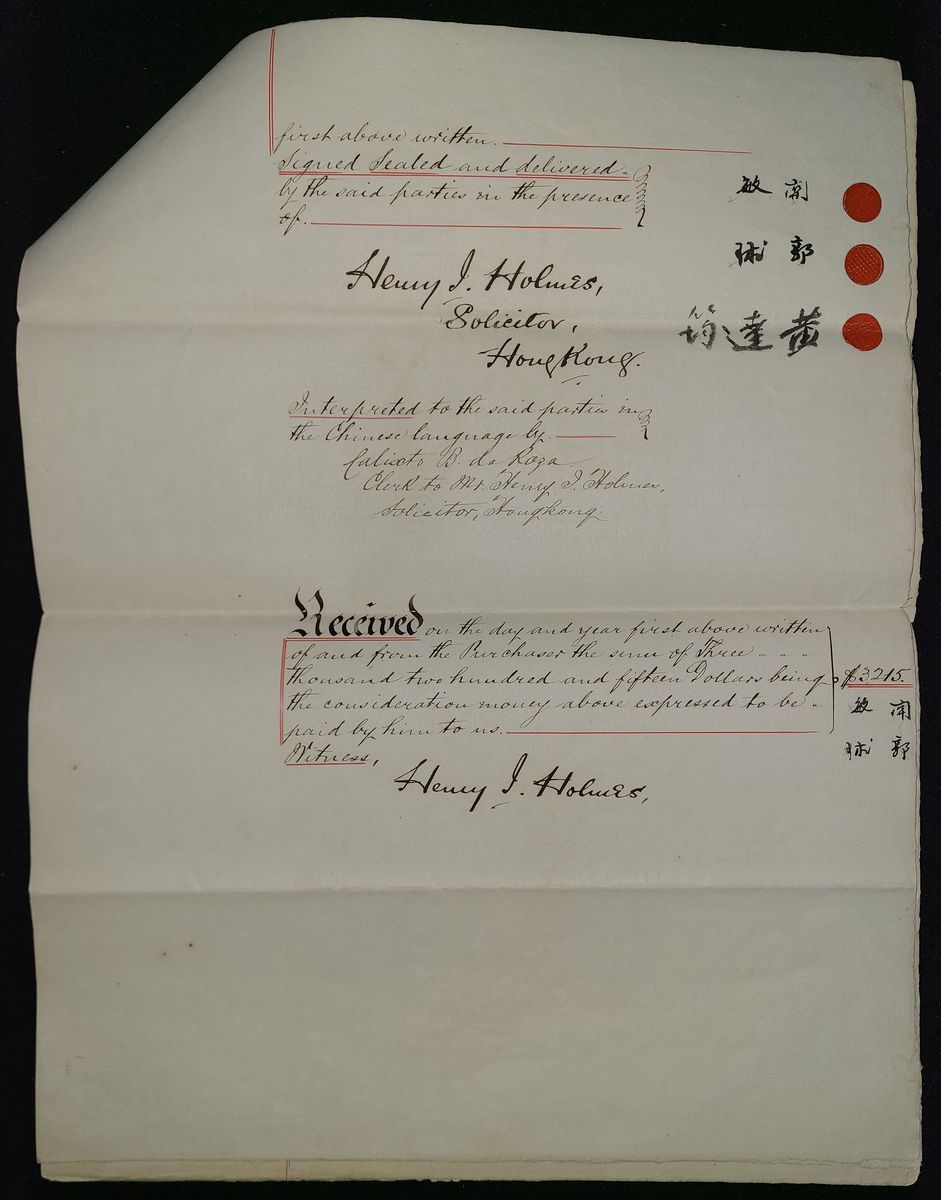 first above written.
Signed Sealed and delivered
by the said parties in the presence
of.
敏 南
球 郭
筠達黃
Henry J. Holmes,
Solicitor,
HongKong.
Interpreted to the said parties in
the Chinese language by.
Calixto B. da Roza
Clerk to Mr. Henry J. Holmes,
Solicitor, Hongkong.
Received on the day and year first above written
of and from the Purchaser the sum of Three
thousand two hundred and fifteen Dollars being
the consideration money above expressed to be
paid by him to us.
$3215.
敏 南
球 郭
Witness,
Henry J. Holmes,